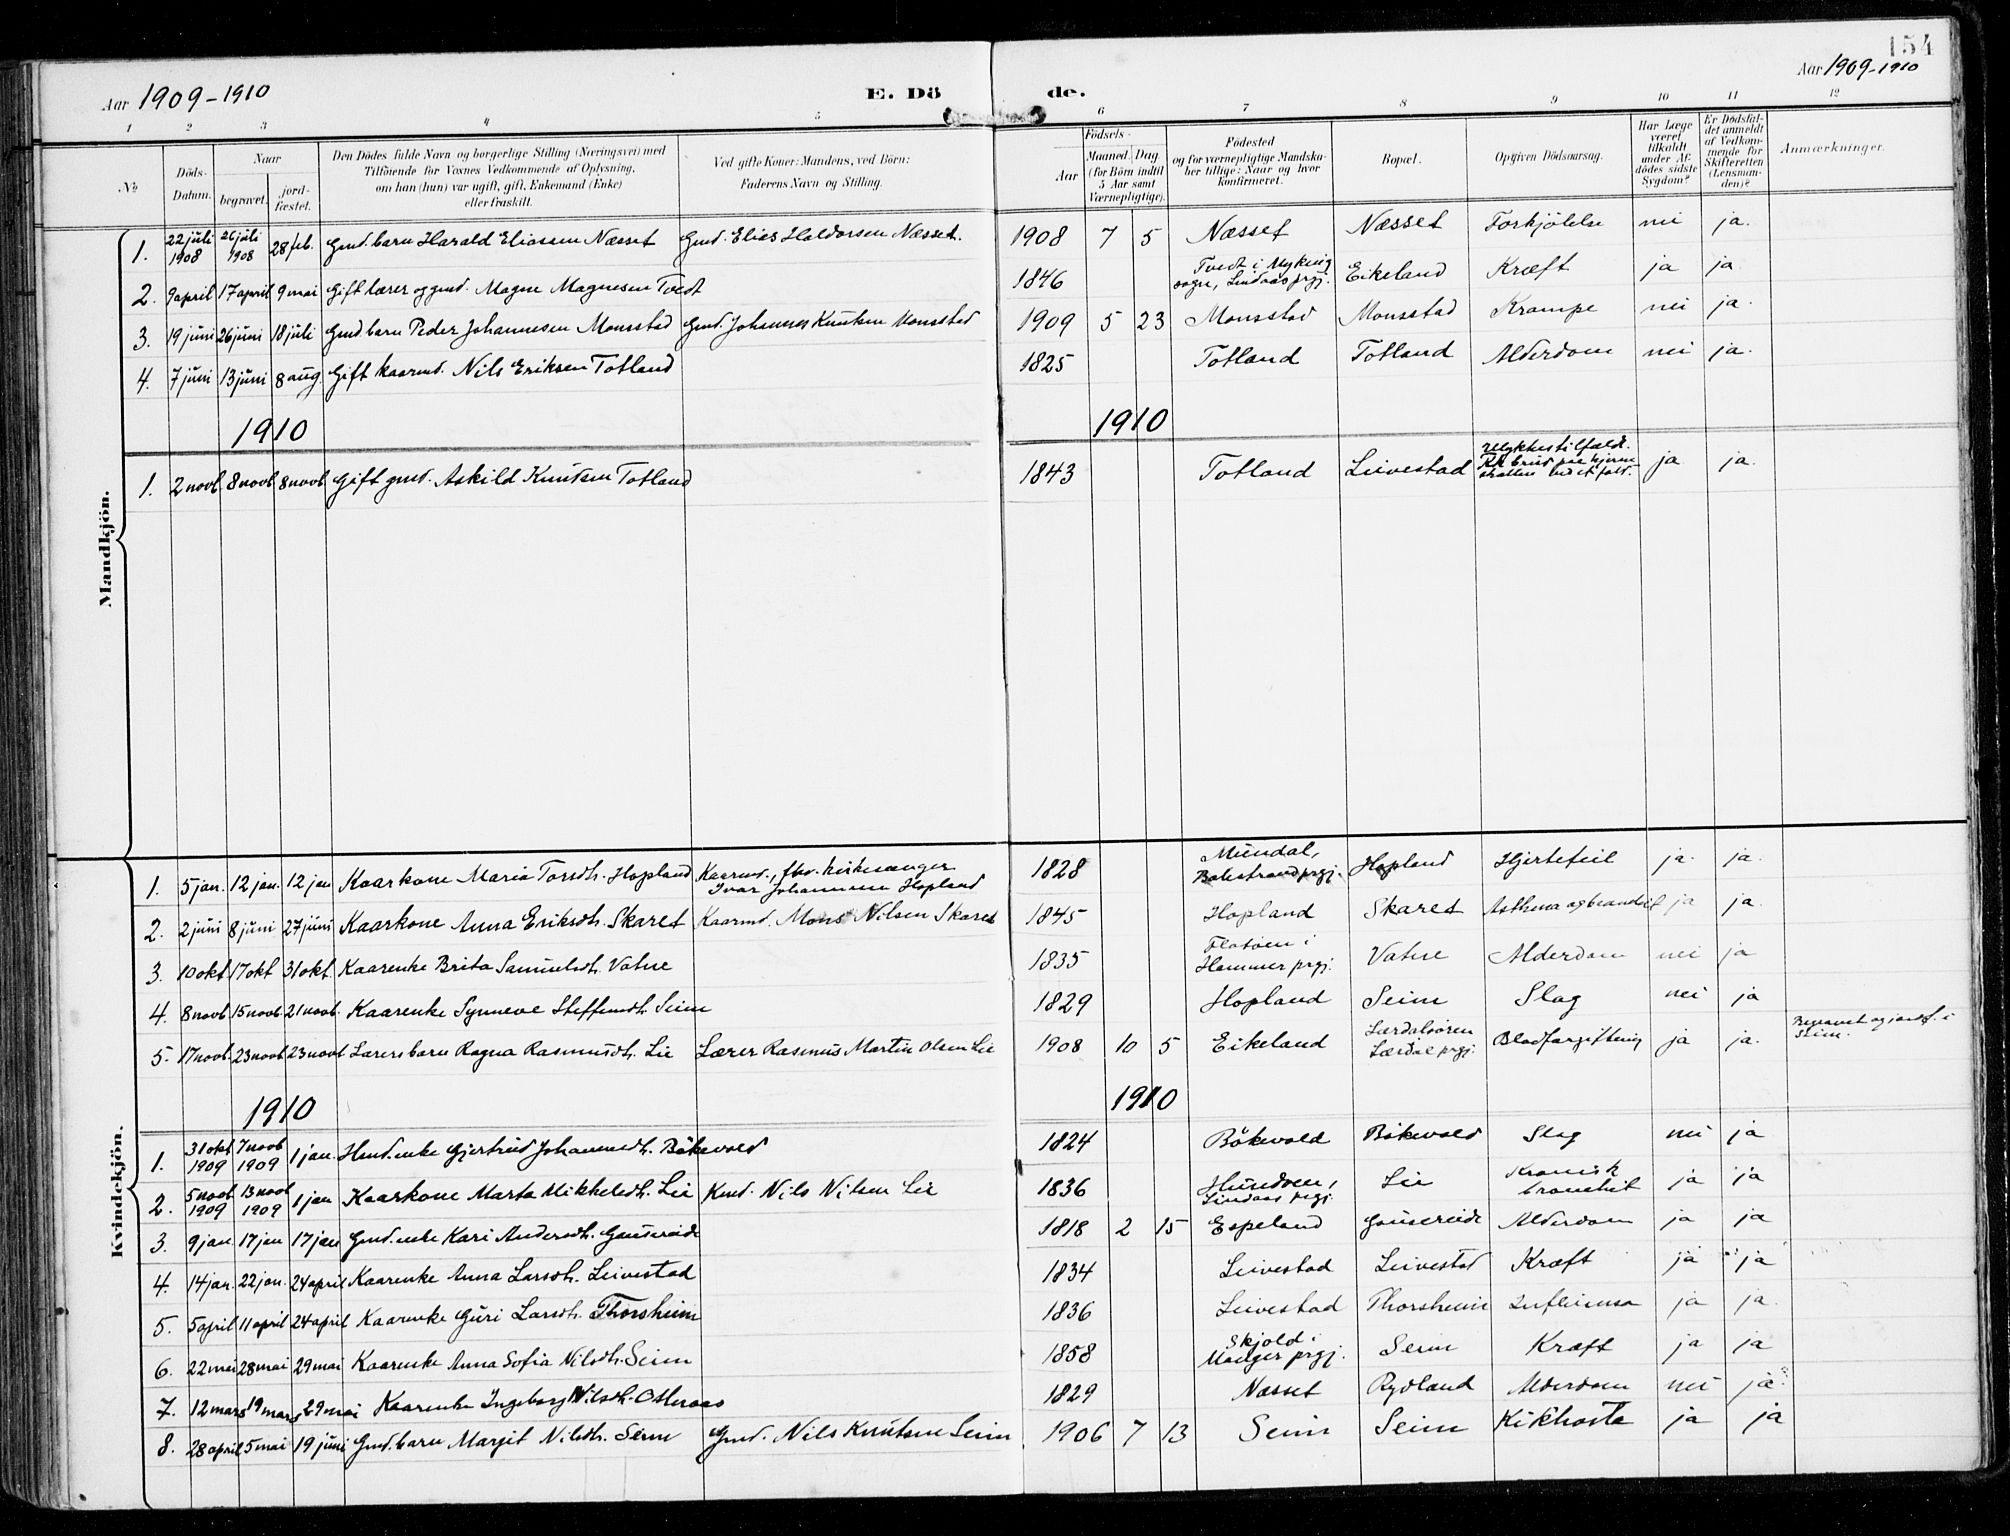 154
Aar 1909-1910 E. Dö de. Aar 1909-1910
1 2 3 4 5 6 7 8 9 10 11 12
No Döds-Datum. Naar begravet. jord-fæstet. Den Dödes fulde Navn og borgerlige Stilling (Næringsvei) med Tilföiende for Voxnes Vedkommende af Oplysning, om han (hun) var ugift, gift, Enkemand (Enke) eller fraskilt. Ved gifte Koner: Mandens, ved Börn: Faderens Navn og Stilling. Födsels- Aar Maaned. Dag. (for Börn indtil 5 Aar samt Værnepligtige). Födested og for værnepligtige Mandskaber tillige: Naar og hvor konfirmeret. Bopæl. Opgiven Dödsaarsag. Har Læge været tilkaldt under Afdödes sidste Sygdom? Er Dödsfaldet anmeldt af Vedkommende for Skifteretten (Lensmanden)? Anmærkninger.
Mandkjön.
1. 22 juli 1908 26 juli 1908 28 feb. Gmd.barn Harald Eliassen Næsset Gmd. Elias Haldorsen Næsset. 1908 7 5 Næsset Næsset Forkjölelse nei ja.
2. 9 april 17 april 9 mai Gift lærer og gmd. Magne Magnesen Tvedt 1846 Tvedt i Myking sogn, Lindaas prgj. Eikeland Kræft ja ja
3. 19 juni 26 juni 18 juli Gmd barn Peder Johannesen Monsstad Gmd. Johannes Knutsen Monsstad 1909 5 23 Monsstad Monsstad Krampe nei ja.
4. 7 juni 13 juni 8 aug Gift kaarmd. Nils Eriksen Totland 1825 Totland Totland Alderdom nei ja.
1910 1910
1. 2 novb. 8 novb 8 novb Gift gmd. Askild Knutsen Totland 1843 Totland Leivestad Ulykkestilfælde. brud paa hjerneskallen ved et fald. ja ja.
Kvindekjön.
1. 5 jan. 12 jan. 12 jan Kaarkone Maria Torsdtr. Hopland Kaarmd., fhv. kirkesanger Ivar Johannesen Hopland 1828 Mundal, Balestrand prgj. Hopland Hjertefeil ja. ja.
2. 2 juni 8 juni 27 juni Kaarkone Anna Eriksdtr. Skaret Kaarmd. Mons Nilsen Skaret 1845 Hopland Skaret Asthma og ja ja.
3. 10 okt 17 okt 31 okt. Kaarenke Brita Samuelsdtr. Vatne 1835 Flatöen i Hammer prgj. Vatne Alderdom nei ja
4. 8 novb. 15 novb 21 novb. Kaarenke Synneve Steffensdtr. Seim 1829 Hopland Seim Slag nei ja
5. 17 novb. 23 novb 23 novb Lærers barn Ragna Rasmusdtr. Lie Lærer Rasmus Martin Olsen Lie 1908 10 5 Eikeland Lærdalsören Lærdal prgj. Blodforgiftning ja ja. Begravet og jordf. i Seim.
1910 1910
1. 31 okt 1909 7 novb 1909 1 jan. Hmd.enke Gjertrud Johannesdtr. Bökevold 1824 Bökevold Bökevold Slag nei ja
2. 5 novb 1909 13 novb 1909 1 jan Kaarkone Marta Mikkelsdtr. Lie Kmd. Nils Nilsen Lie 1836 Hundven, Lindaas prgj. Lie Kronisk bronchit ja ja
3. 9 jan. 17 jan 17 jan Gmd.enke Kari Andersdtr. Gausereide 1818 2 15 Espeland Gausereide Alderdom ja ja
4. 14 jan. 22 jan. 24 april Kaarenke Anna Larsdtr. Leivestad 1834 Leivestad Leivestad Kræft ja ja
5. 5 april 11 april 24 april Kaarenke Guri Larsdtr. Thorsheim 1836 Leivestad Thorsheim Influensa ja ja.
6. 22 mai 28 mai 29 mai Kaarenke Anna Sofia Nilsdtr. Seim 1858 Skjold i Manger prgj. Seim Kræft ja ja
7. 12 mars 19 mars 29 mai Kaarenke Ingeborg Nilsdtr. Osteraas 1829 Næsset Rydland Alderdom nei ja
8. 28 april 5 mai 19 juni Gmd.barn Margit Nilsdtr. Seim Gmd. Nils Knutsen Seim 1906 7 13 Seim Seim Kikhoste ja ja